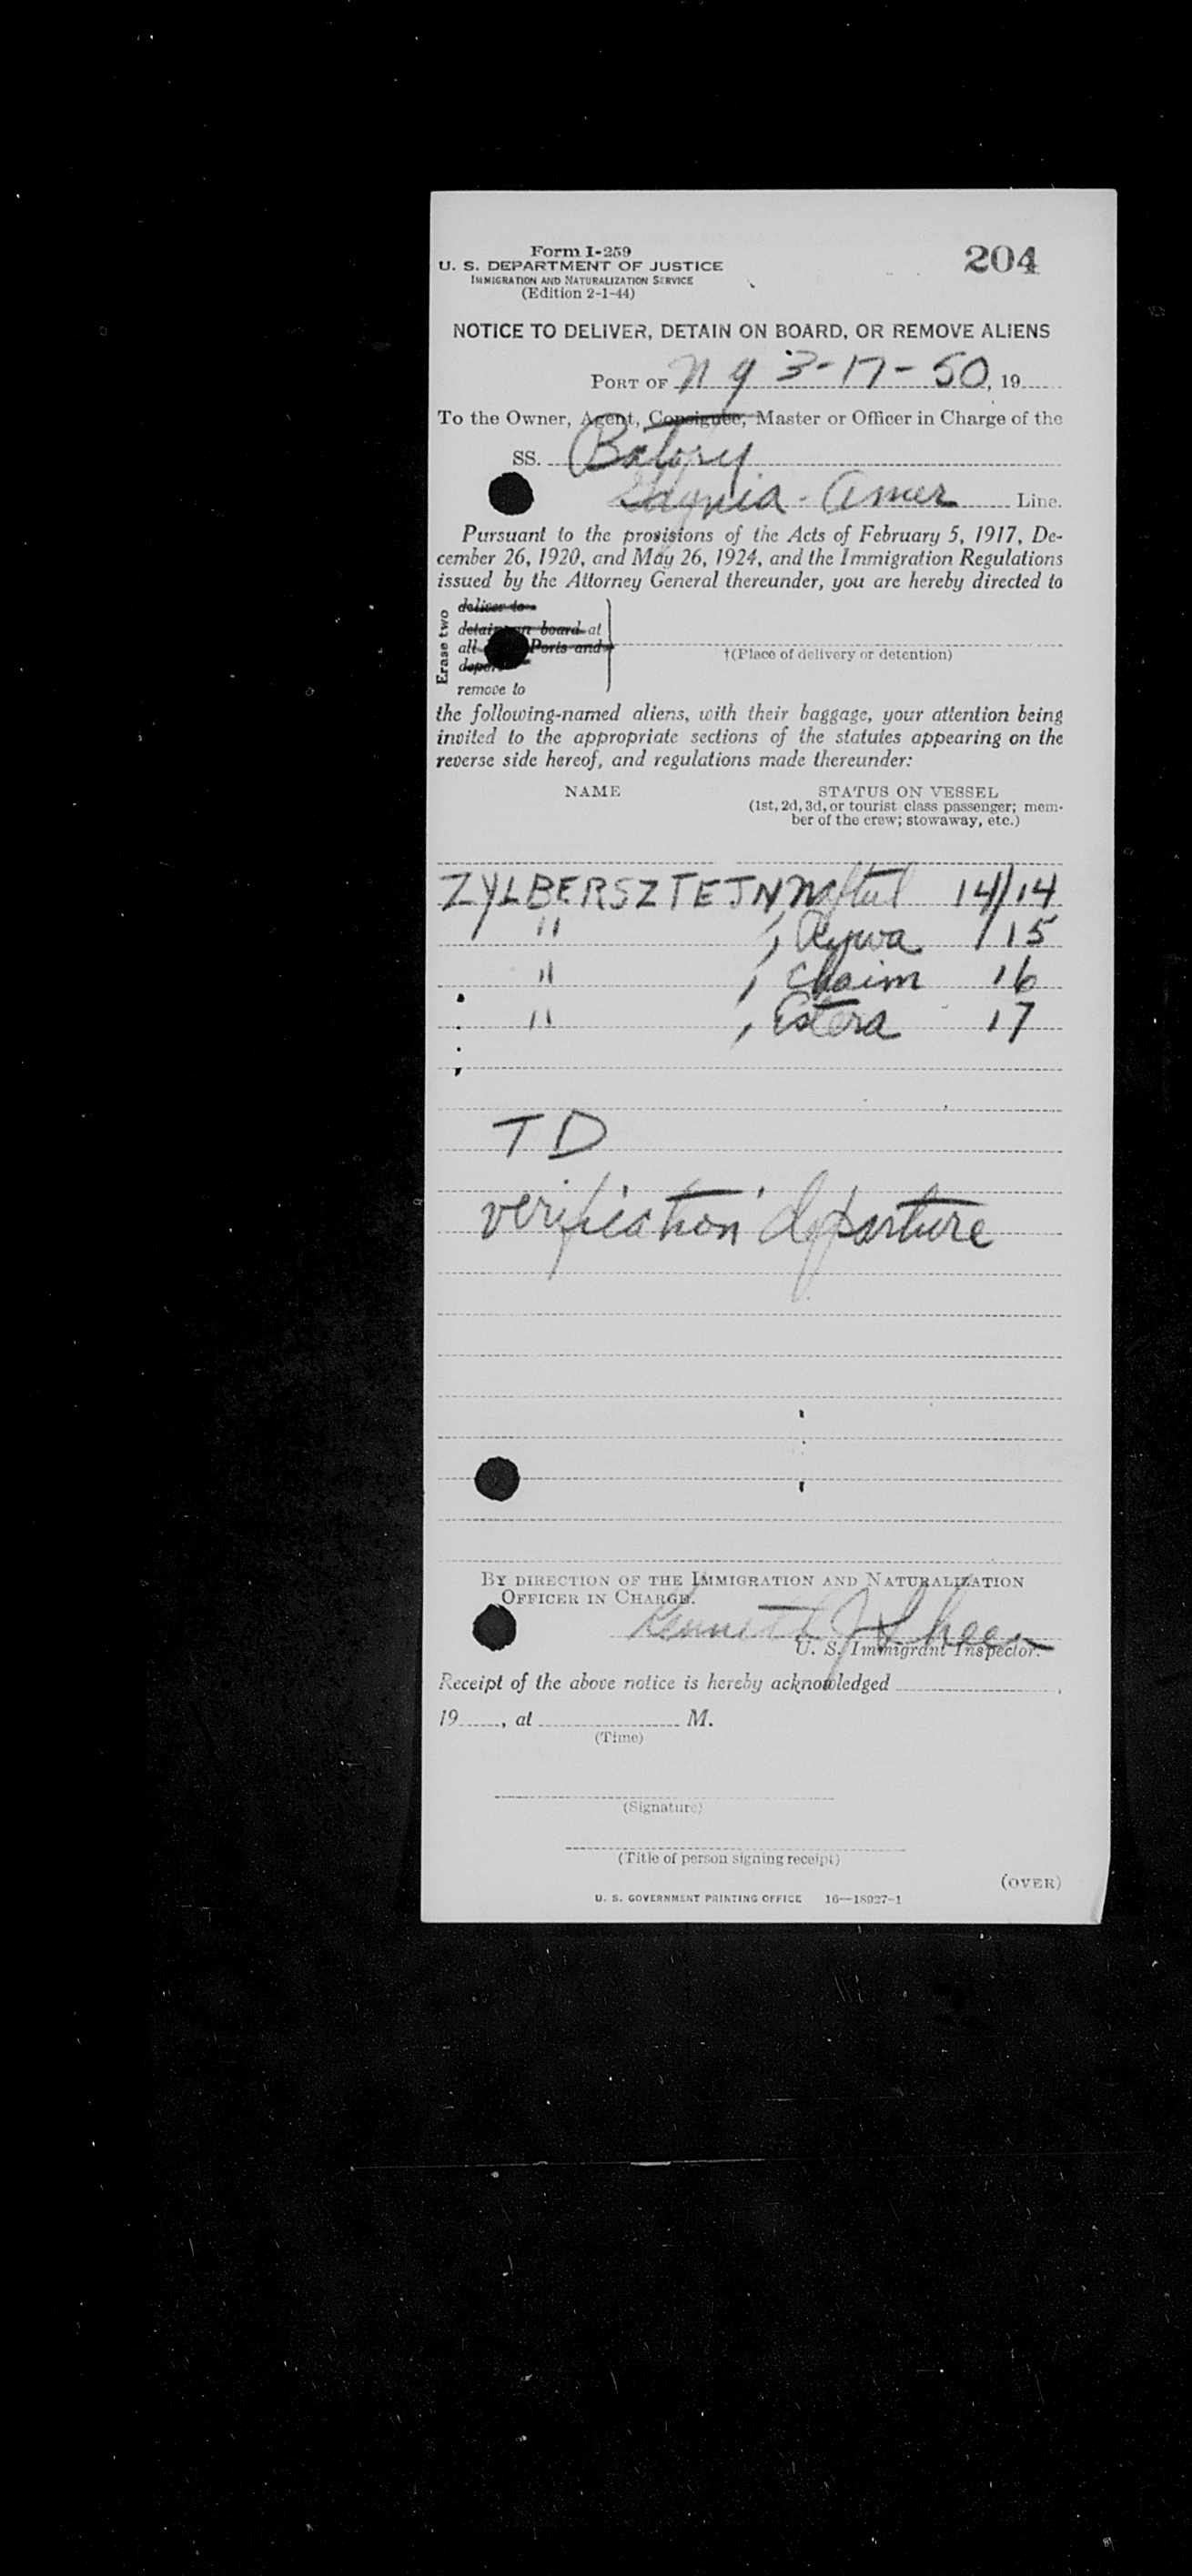 Form I-259
U. S. DEPARTMENT OF JUSTICE
IMMIGRATION AND NATURALIZATION SERVICE
(Edition 2-1-44)
204
NOTICE TO DELIVER, DETAIN ON BOARD, OR REMOVE ALIENS
PORT OF N Y 3-17-50, 19
To the Owner, Agent, Consignee, Master or Officer in Charge of the
SS. Batory
Gdynia - Amer Line.
Pursuant to the provisions of the Acts of February 5, 1917, De-
cember 26, 1920, and May 26, 1924, and the Immigration Regulations
issued by the Attorney General thereunder, you are hereby directed to
Erase two
deliver to
detain on board at
all Ports and
remove to
†(Place of delivery or detention)
the following-named aliens, with their baggage, your attention being
invited to the appropriate sections of the statutes appearing on the
reverse side hereof, and regulations made thereunder:
NAME STATUS ON VESSEL
(1st, 2d, 3d, or tourist class passenger; mem-
ber of the crew; stowaway, etc.)
ZYLBERSZTEJN Naftul 14/14
" , Rywa /15
" , Chaim 16
" , Estera 17
T D
verification departure
BY DIRECTION OF THE IMMIGRATION AND NATURALIZATION
OFFICER IN CHARGE.
Kenneth J.
U. S. Immigrant Inspector.
Receipt of the above notice is hereby acknowledged ,
19 , at M.
(Time)
(Signature)
(Title of person signing receipt)
(OVER)
U. S. GOVERNMENT PRINTING OFFICE 16—18027-1